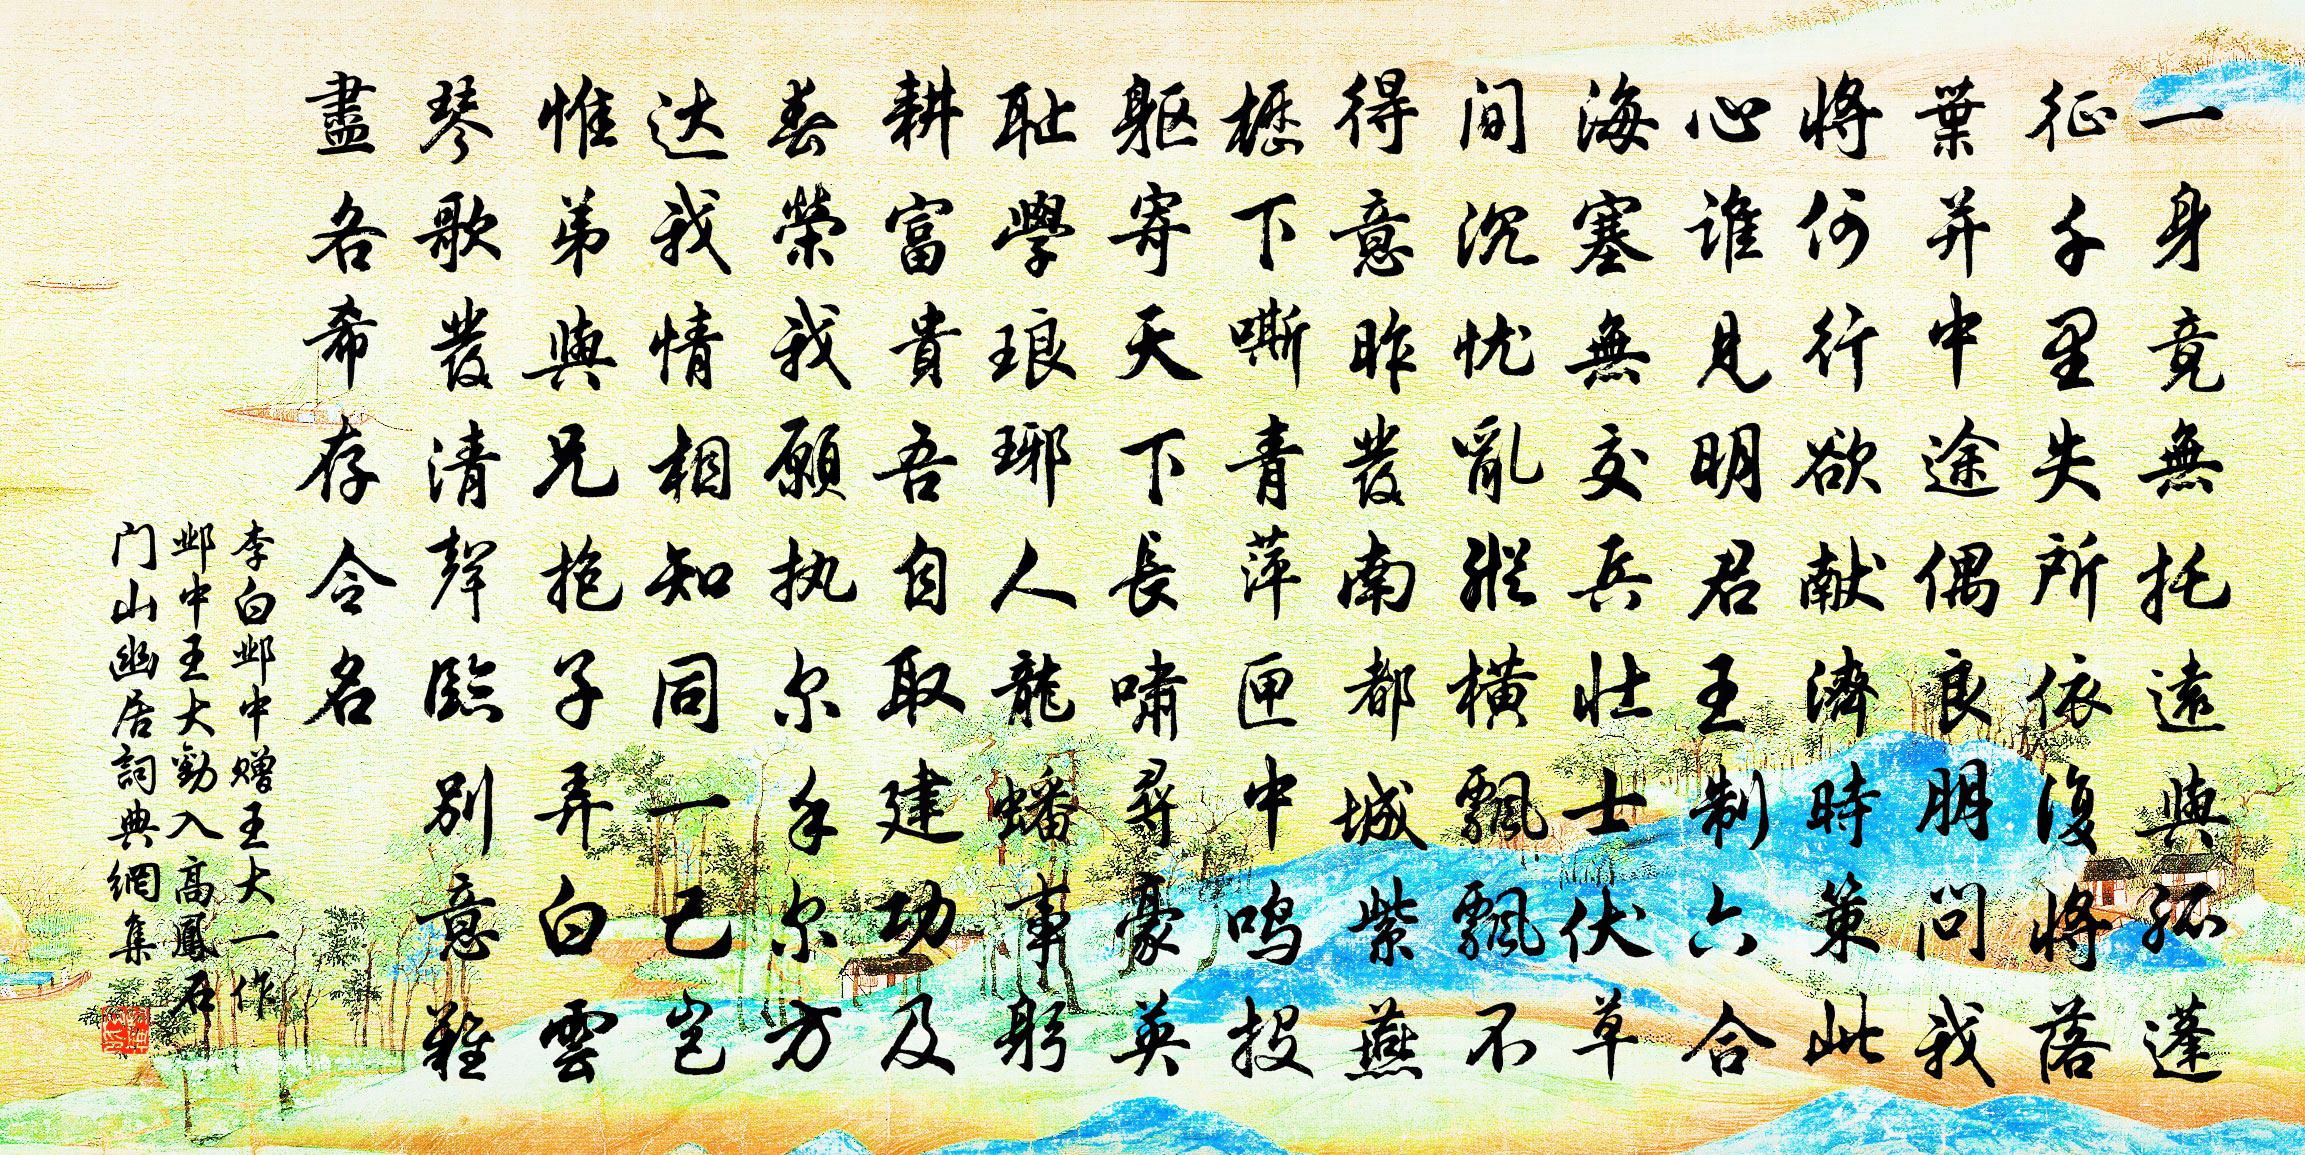 一身竟無托遠與孤蓬
征千里失所依復將落
葉并中途偶良朋问我
将何行欲献濟時策此
心谁見明君王制六合
海塞無交兵壮士伏草
间沉忧亂縱橫飄飄不
得意昨發南都城紫燕
櫪下嘶青萍匣中鸣投
躯寄天下長啸尋豪英
耻學琅琊人龍蟠事躬
耕富貴吾自取建功及
春榮我願执尔手尔方
达我情相知同一己岂
惟弟與兄抱子弄白雲
琴歌發清聲臨别意難
盡各希存令名
李白邺中赠王大一作
邺中王大勸入高鳳石
门山幽居詞典網集